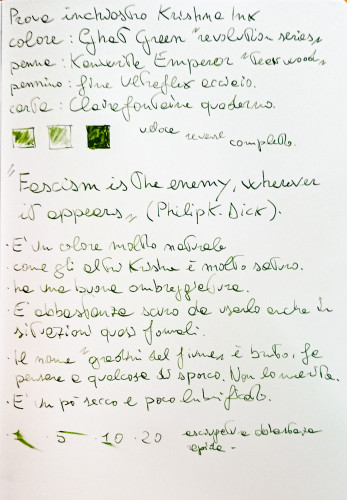 Prova inchiostro Krishna Ink
colore: Ghat Green "revolution series"
penna: Kanwrite Emperor "teakwood"
pennino: fine Ultraflex acciaio.
carta: Clairefontaine quaderno.
veloce reverse completo.
"Fascism is the enemy, wherever
it appears" (Philip K. Dick).
· E' un colore molto naturale
· come gli altri Krishna è molto saturo.
· ha una buona ombreggiatura.
· E' abbastanza scuro da usarlo anche in
situazioni quasi formali.
· il nome "gradini del fiume" è brutto, fa
pensare a qualcosa di sporco. Non lo merita.
· E' un pò secco e poco lubrificato.
· 5 · 10 · 20 asciugatura abbastanza
rapida -